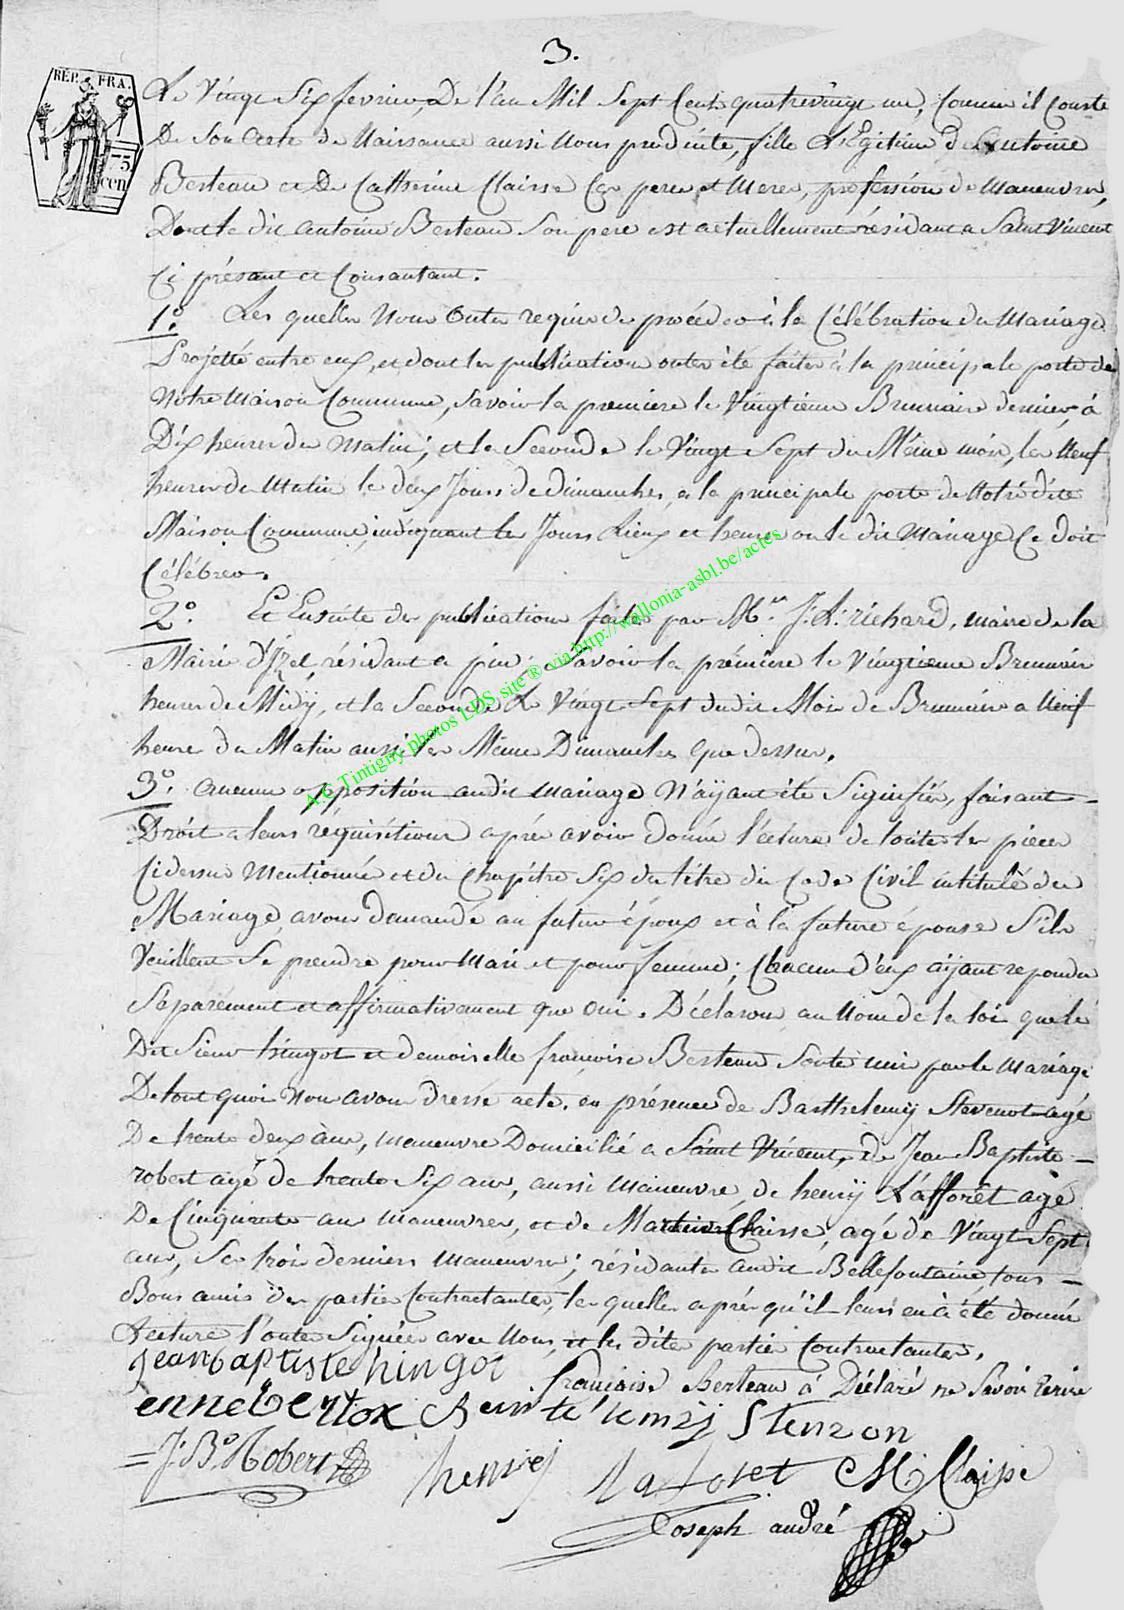 3.
RÉP. FRA.
75
cen
Le Vingt Six fevrier, De l'an Mil Sept Cents quatrevingt un, Comme il Conste
De Son Acte de Naissance aussi Nous produite, fille Légitime d'Antoine
Berteau et De Catherine Claisse Ces pere et Mere, profession de Maneuvre,
Dont le dit antoine Berteau Son pere est actuellement résidant a Saint Vincent
Ci présant et Consantant.
1°. Les quelles Nous Ontes requis de procéder à la Célébration du Mariage
Projetté entre eux, et dont les publications ontes été faites à la principale porte de
Notre Maison Commune, Savoir la premiere le Vingtieme Brumaire dernier, à
Dix heures du Matin; et la Seconde le Vingt Sept du Même mois, les Neuf
heures du Matin le deux Jours de Dimanches, a la principale porte de Notre dite
Maison Commune, indiquant les Jours Lieux et heures ou le dit Mariage Ce doit
Célébrer.
2°. Et Ensuite des publications faites par Mr. J. A. richard, maire de la
Mairie d'Izel, résidant a pin; Savoir la première le Vingtieme Brumair
heures de Midy, et la Seconde Le Vingt Sept dudit Mois de Brumaire a Neuf
heure du Matin aussi les Même Dimanches que dessus.
3°. aucune opposition audit Mariage N'ayant été Signifiée, faisant
Droit a leurs réquisitions après avoir donné l'ecture de toutes les pieces
Cidessus Mentionné et du Chapitre Six du titre du Code Civil intitulé du
Mariage, avons demandé au futur époux et à la future épouse S'ils
Veuillent Se prendre pour Mari et pour femme; Chacun d'eux aÿant repondu
Séparément et affirmativement que Oui. Déclarons au Nom de la loi que le
Dit Sieur hingot et demoiselle françoise Berteau Sonte unis par le Mariage
De tout quoi Nous avons dressé acte. en présence de Barthelemÿ Stevenot agé
De trente deux ans, maneuvre Domicilié a Saint Vincent, de Jean Baptiste
robert agé de trente Six ans, aussi Maneuvre, de henrÿ Lafforêt agé
De Cinquante ans Maneuvres, et de Martin Claisse, agé de Vingt Sept
ans, Ses trois derniers Maneuvre; résidants audit Bellefontaine tous
Bons amis des parties Contractantes, les quelles après qu'il leurs en à été donné
Lecture l'onte Signées avec Nous, et les dites parties Contractantes.
Jean baptiste hingot
françoise Berteau à Déclaré ne Savoir Ecrire
J. B. Robert
henrÿ laforet M Claisse
Joseph andré
A.C Tintigny photos LDS, site ® via http://wallonia-asbl.be/actes